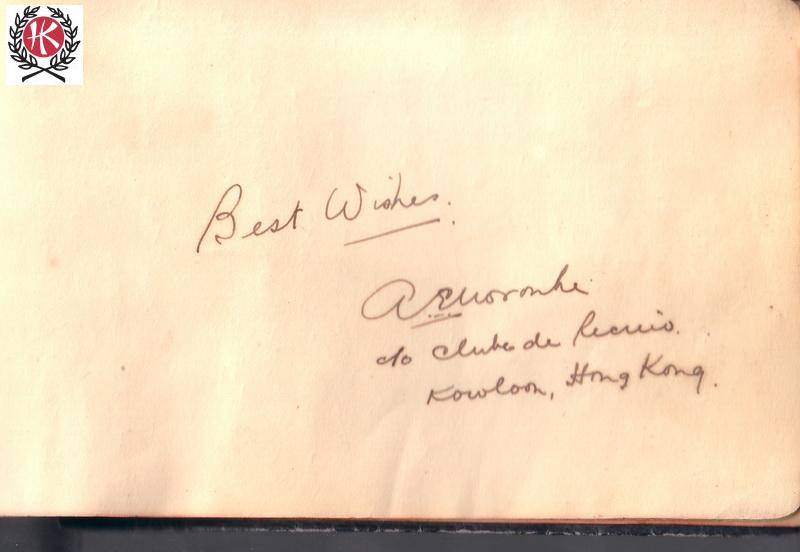 HK
Best Wishes.
c/o Clube de Recreio.
Kowloon, Hong Kong.